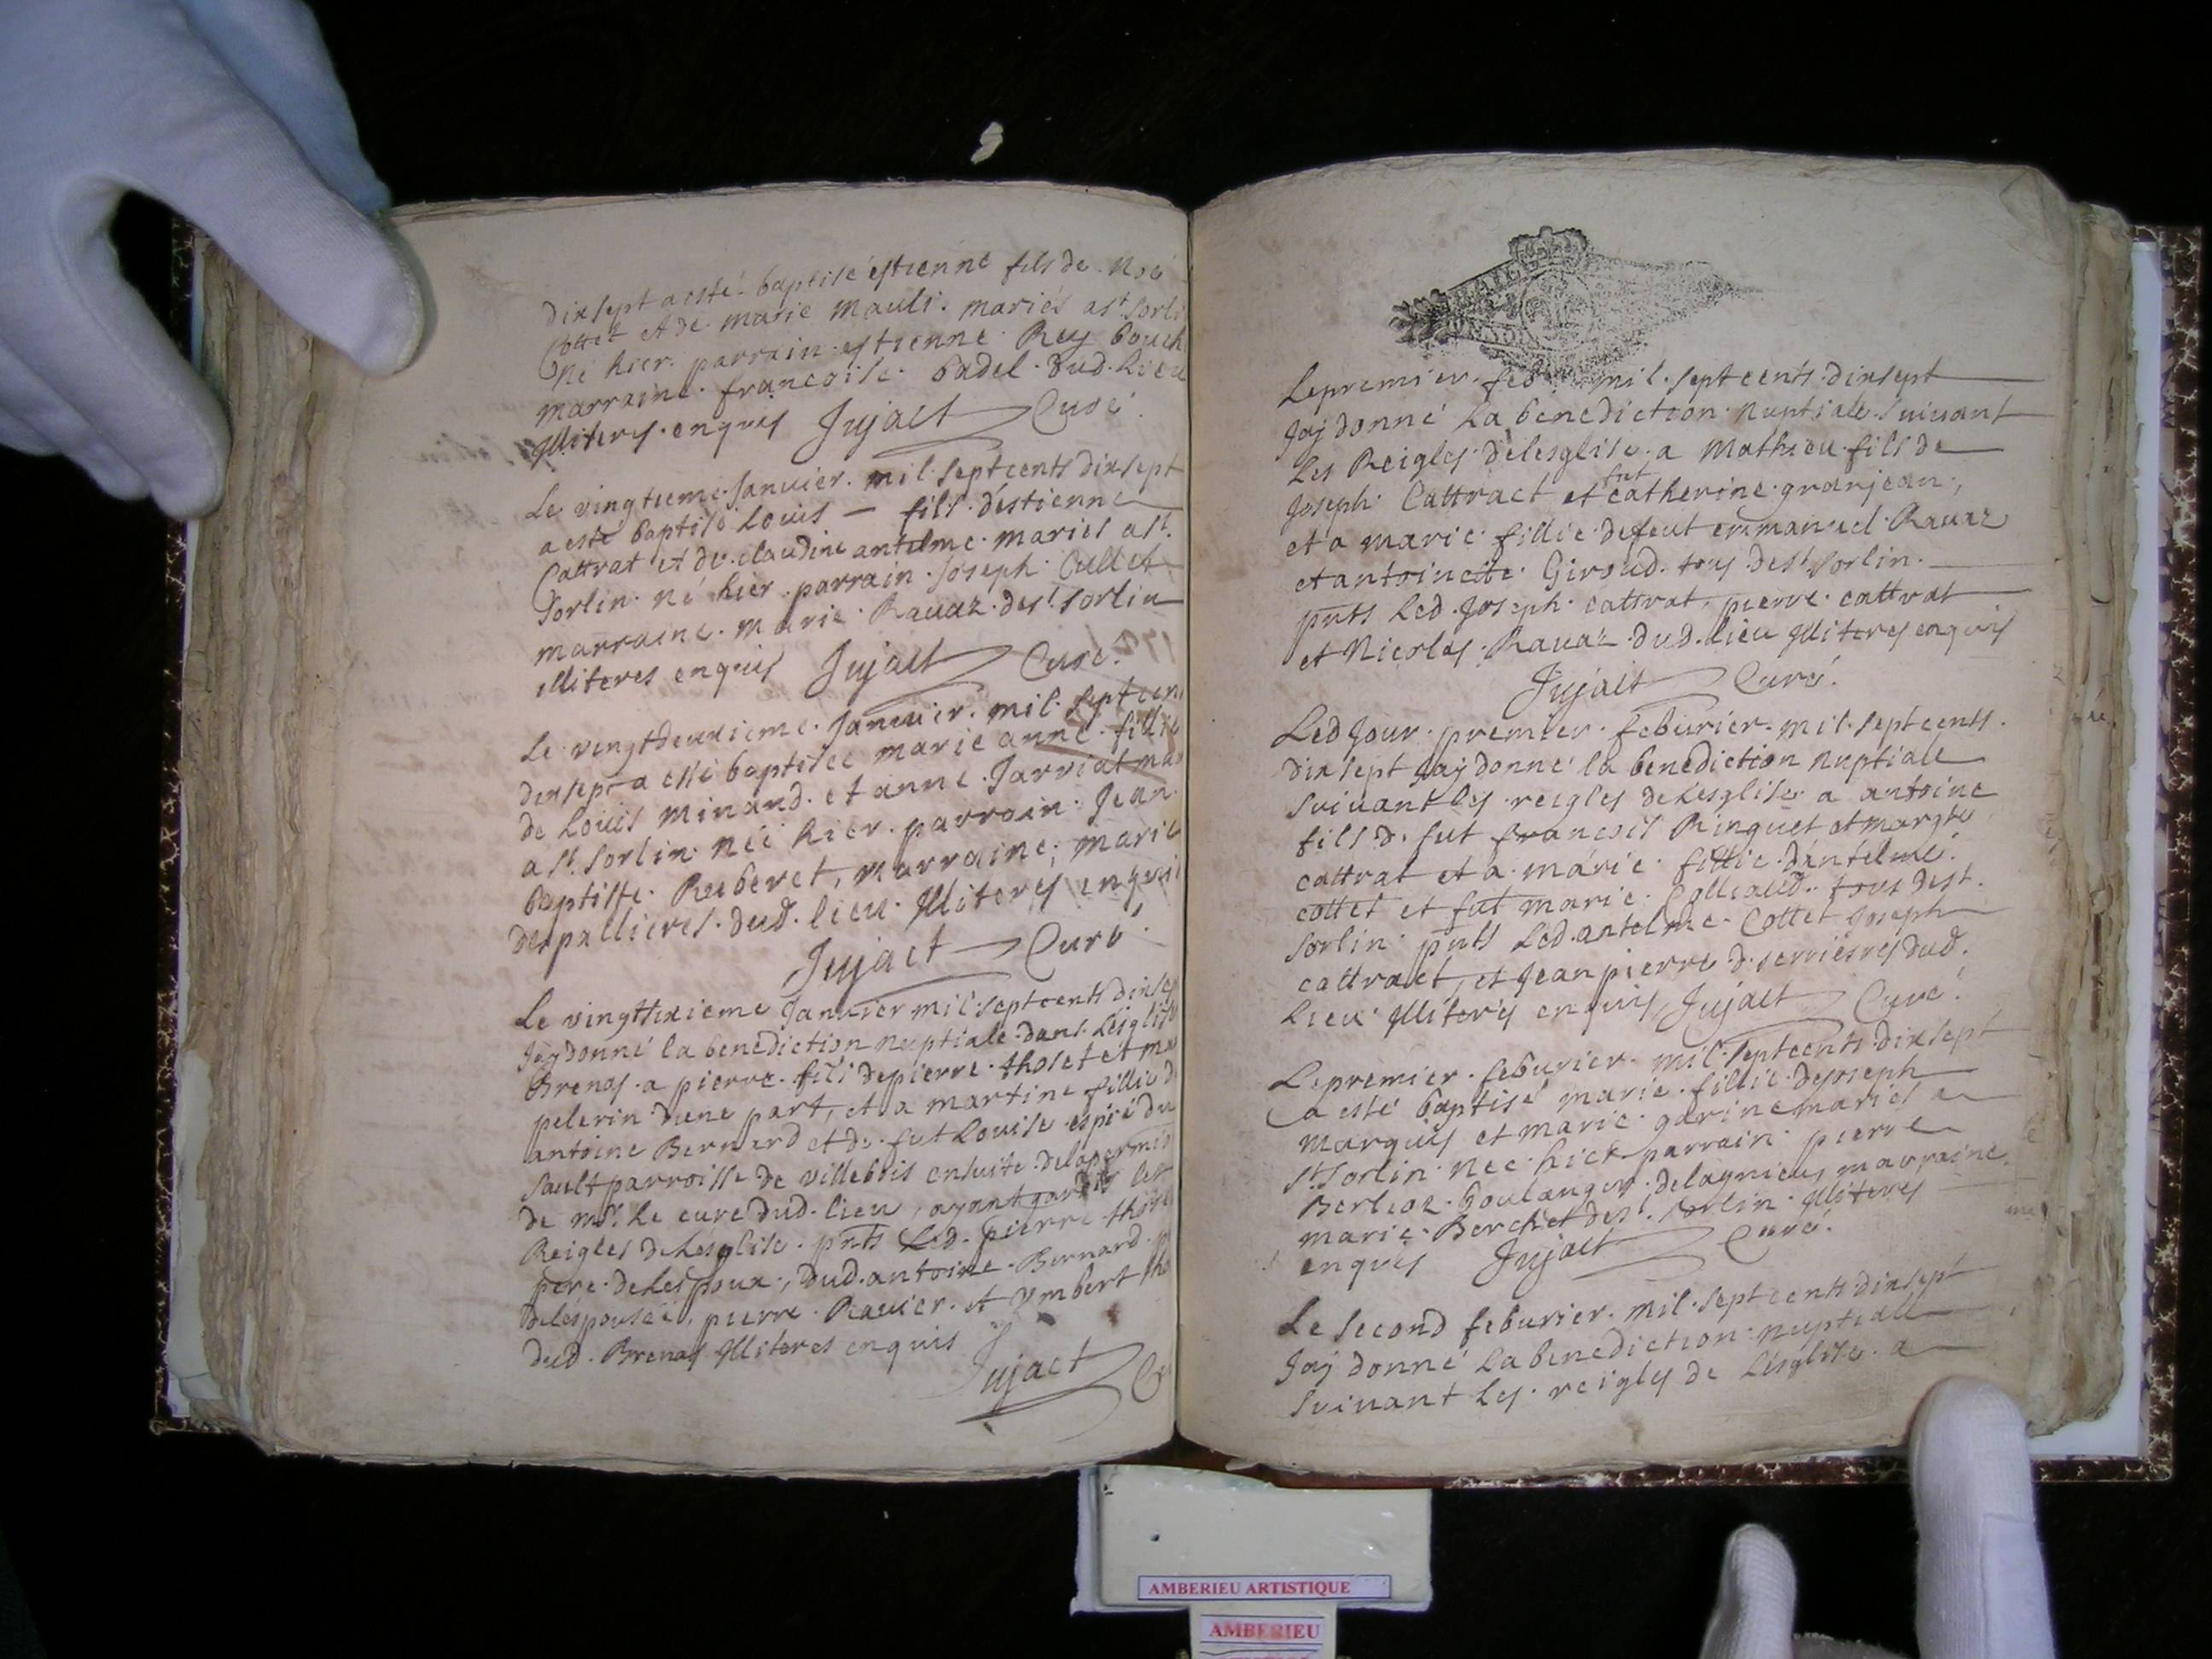 dixsept a esté baptisé estienne fils de Noé
Cottet et de marie mauli mariés a st Sorli
Né hier parrain estienne Rey bouch
marraine francoise badel dud. Lieu
Illiteres enquis Jujact Curé
Le vingtieme Janvier mil septcents dixsept
a esté baptisé Louis — fils d'estienne
Cattrat et de claudine antelme mariés a st.
Sorlin né hier parrain Joseph Cullet
marraine marie Ravaz de st Sorlin
illiteres enquis Jujact Curé.
Le vingtdeuxieme Janvier mil septcen
dixsept a esté baptisée marie anne fillie
de Louis minand et anne Jarriat mar
a st. Sorlin née hier parrain Jean
baptiste Reuberet, marraine, marie
despallieres dud. lieu Illiteres enqui
Jujact Curé
Le vingtsixieme Janvier mil septcents dixsep
Jay donné la benediction nuptiale dans Lesglise
Brenas a pierre fils de pierre thoset et ma
pelerin dune part, et a martine fillie d
antoine Bernard et de fut Louise espié du
Sault parroisse de villebois ensuite de la permis
de mr. Le curé dud. lieu, ayant gardé les
Reigles de Lesglise pnts Led. pierre those
pere de Lespoux, dud. antoine Bernard p
de lespousée, pierre Ravier et ymbert tho
dud. Brenas Illiteres enquis
Jujact C
Le premier feb mil septcents dixsept
Jaj donné La benediction Nuptiale Suivant
Les Reigles de lesglise a Mathieu fils de
Joseph Cattract et fut catherine granjean,
et a marie fillie de feut emmanuel Ravaz
et antoinette Giroud tous de st Sorlin.
pnts Led. Joseph cattrat, pierre cattrat
et Nicolas Ravaz dud. lieu Illiteres enquis
Jujact Curé.
Led Jour premier feburier mil septcents
dixsept Jaj donné la benediction nuptiale
Suivant les reigles de Lesglise a antoine
fils de fut francois Ringuet et margte
cattrat et a marie fillie d'antelme
cottet et fut marie Colliaud tous de st.
Sorlin pnts Led. antelme Cottet Joseph
cattract, et Jean pierre de serriesres dud.
Lieu Illiterés enquis, Jujact Curé.
Le premier feburier mil septcents dixsept
a esté baptisé marie fillie de Joseph
marquis et marie garine mariés a
st Sorlin née hier parrain pierre
Berlioz boulanger de lagnieu marraine
marie Berchet de st. Sorlin Illiteres
enquis Jujact Curé.
Le Second feburier mil septcents dixsept
Jaj donné La benediction nuptiale
Suivant Les reigles de Lesglise a
AMBERIEU ARTISTIQUE
AMBERIEU